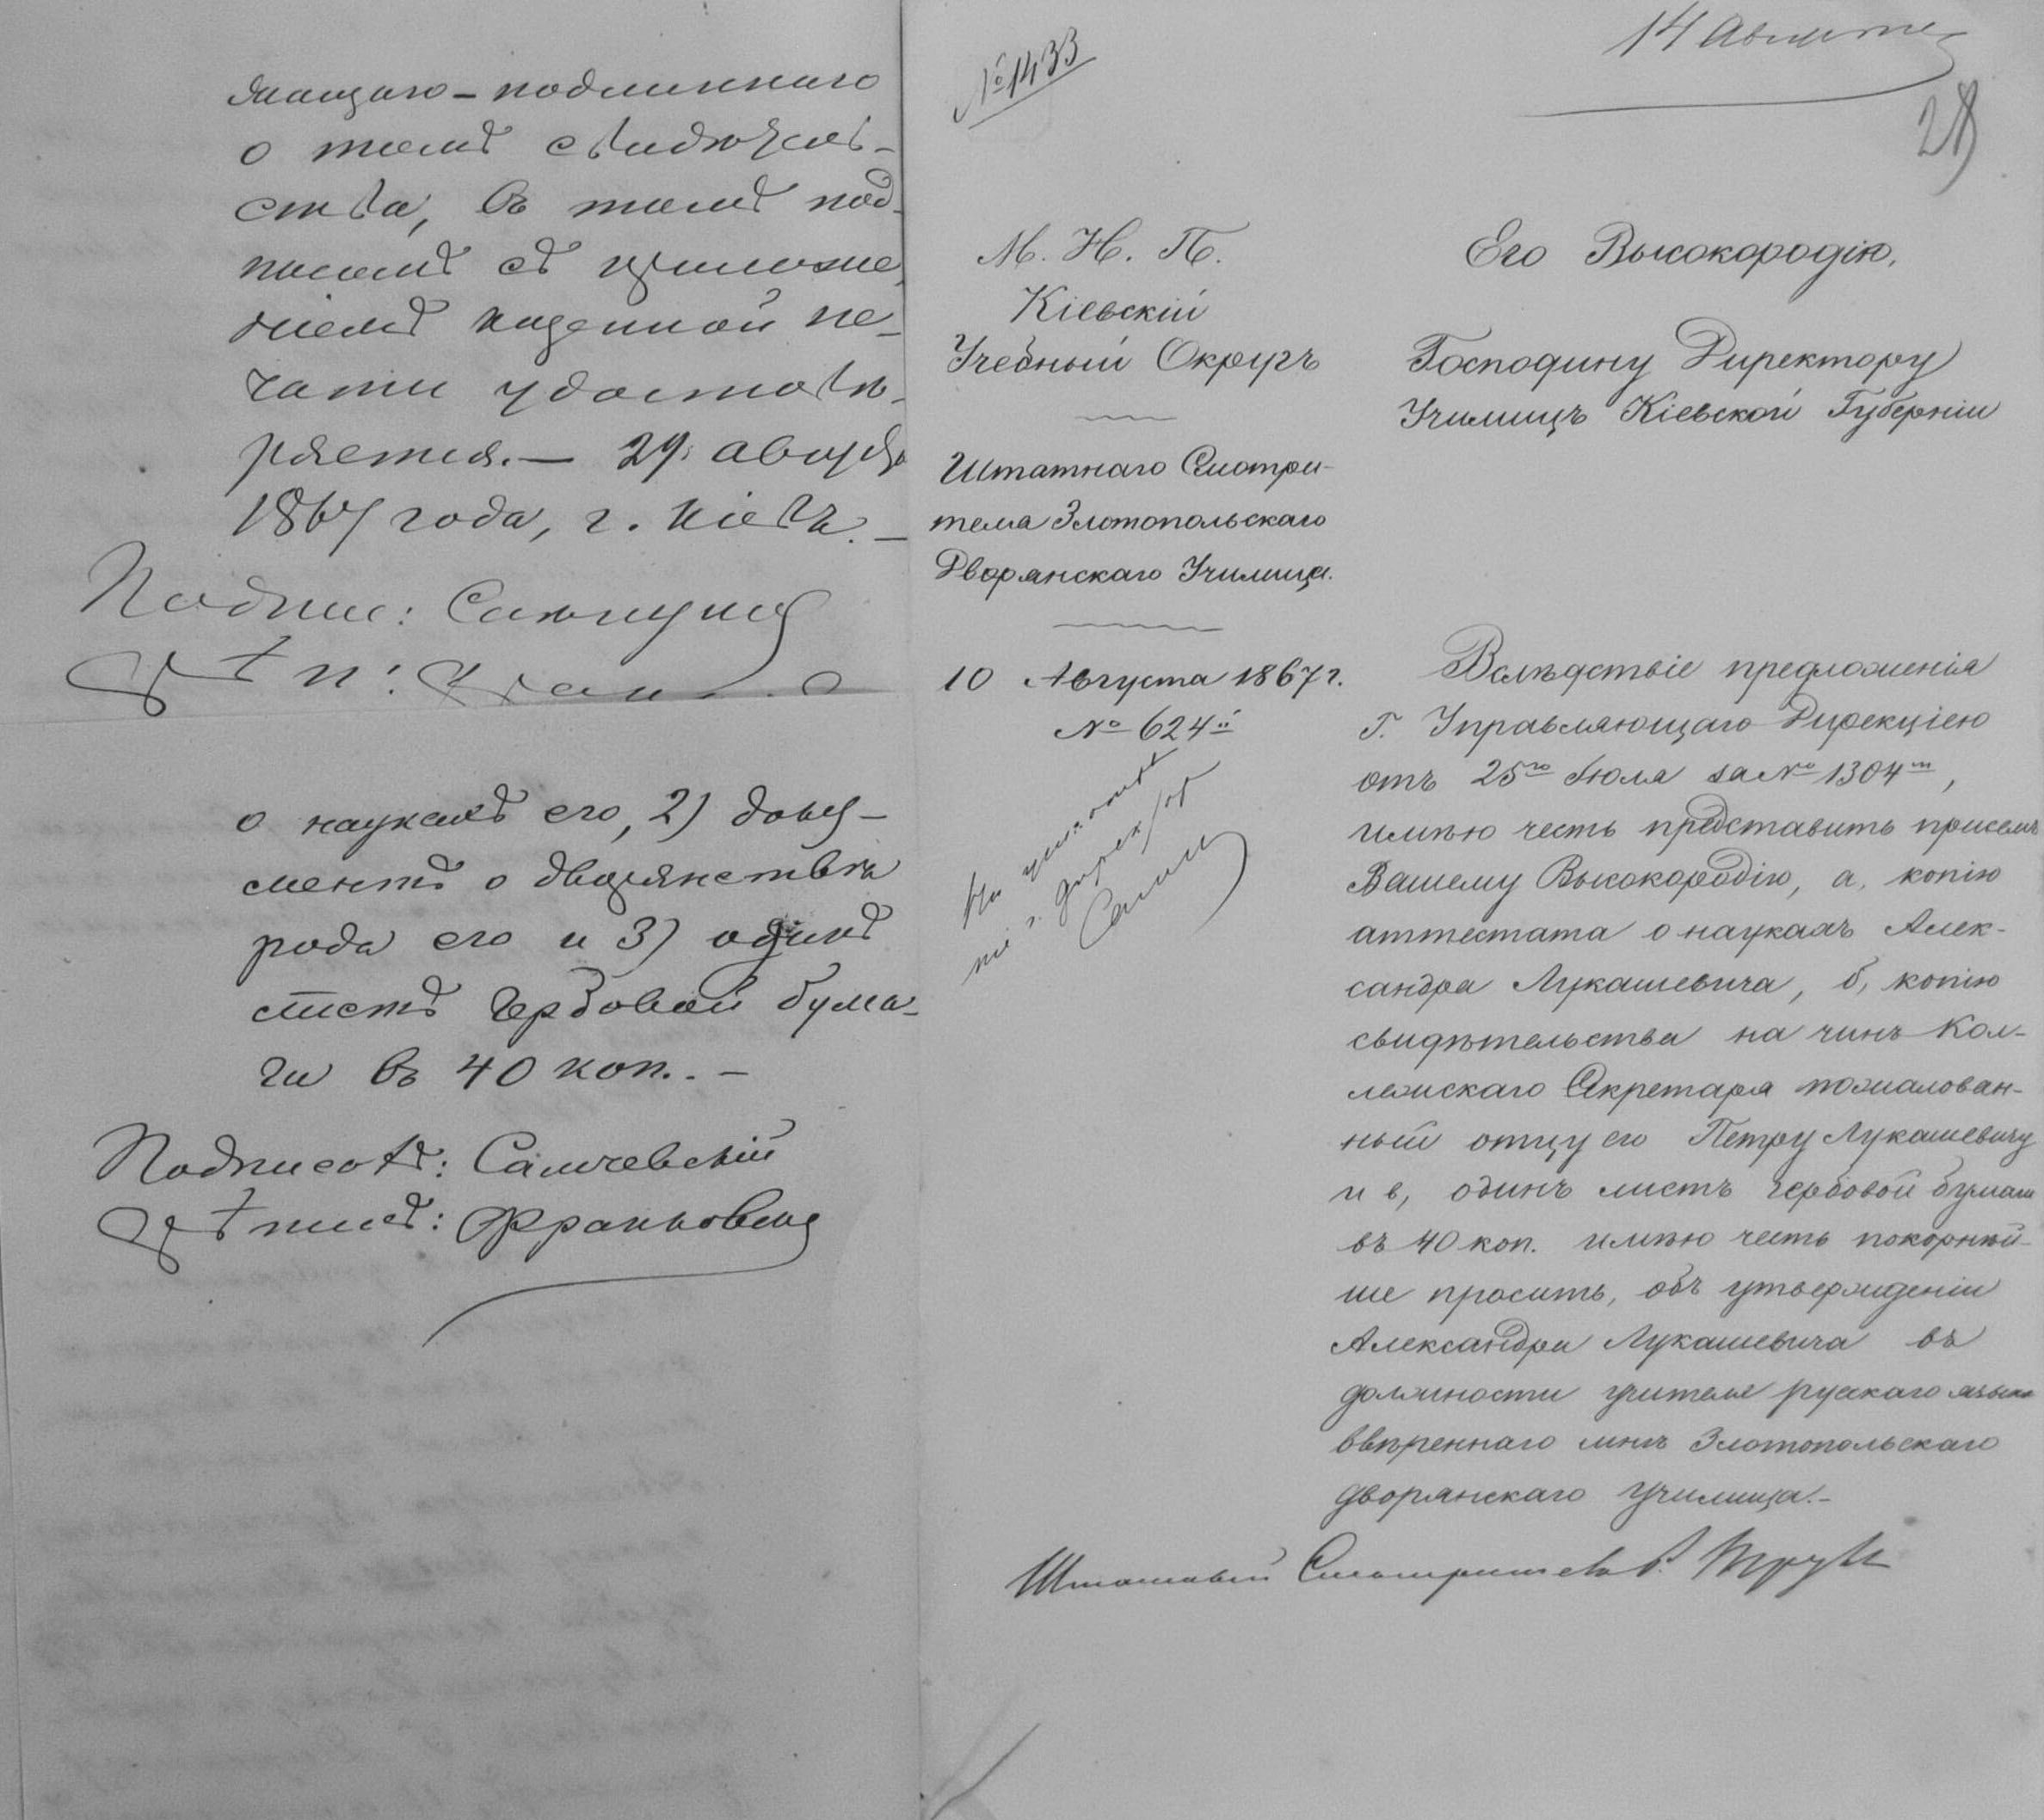 длинаго – подлиннаго
о томъ свидѣтель-
ства, въ томъ под-
писомъ съ приложе-
ніемъ казенной пе-
чати удостовѣ-
ряется. – 29 августа
1867 года, г. Кіевъ. –
Подпис:
о наукахъ его, 2) доку-
ментъ о дворянствѣ
рода его и 3) одинъ
листъ гербовой бума-
ги въ 40 коп. –
Подписалъ: Самчевскій
Франковскій
№ 1433
14 Августа
28
М. Н. П.
Кіевскій
Учебный Округъ
Штатнаго Смотри-
теля Златопольскаго
Дворянскаго Училища.
10 Августа 1867 г.
№ 624й
Его Высокородію,
Господину Директору
Училищъ Кіевской Губерніи
Вслѣдствіе предложенія
Г. Управляющаго Дирекціею
отъ 25го Іюля за № 1304м,
имѣю честь представить присемъ
Вашему Высокородію, а, копію
аттестата о наукахъ Алек-
сандра Лукашевича, б, копію
свидѣтельства на чинъ Кол-
лежскаго Секретаря пожалован-
ный отцу его Петру Лукашевичу
и в, одинъ листъ гербовой бумаги
въ 40 коп. имѣю честь покорнѣй-
ше просить, объ утвержденіи
Александра Лукашевича въ
должности учителя рускаго языка
ввѣреннаго мнѣ Златопольскаго
дворянскаго училища. –
Штатный Смотритель